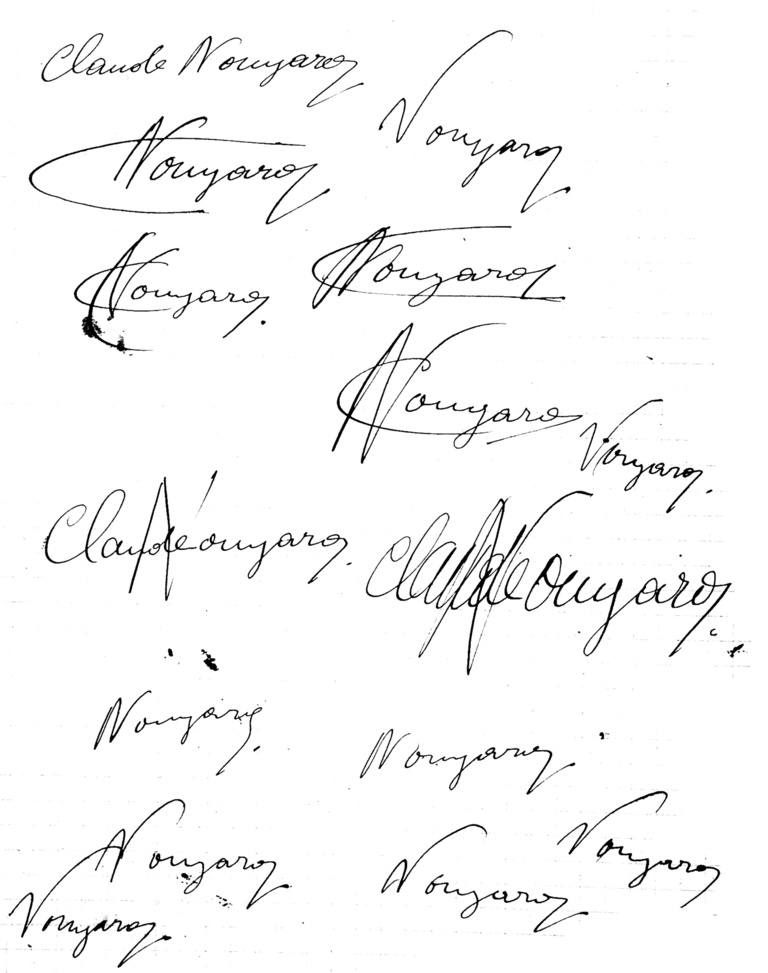 Claude Nougaro
Nougaro
Nougaro
Nougaro.
Nougaro
Nougaro
Nougaro.
Claude Nougaro.
Claude Nougaro.
Nougaro.
Nougaro
Nougaro
Nougaro
Nougaro
Nougaro.